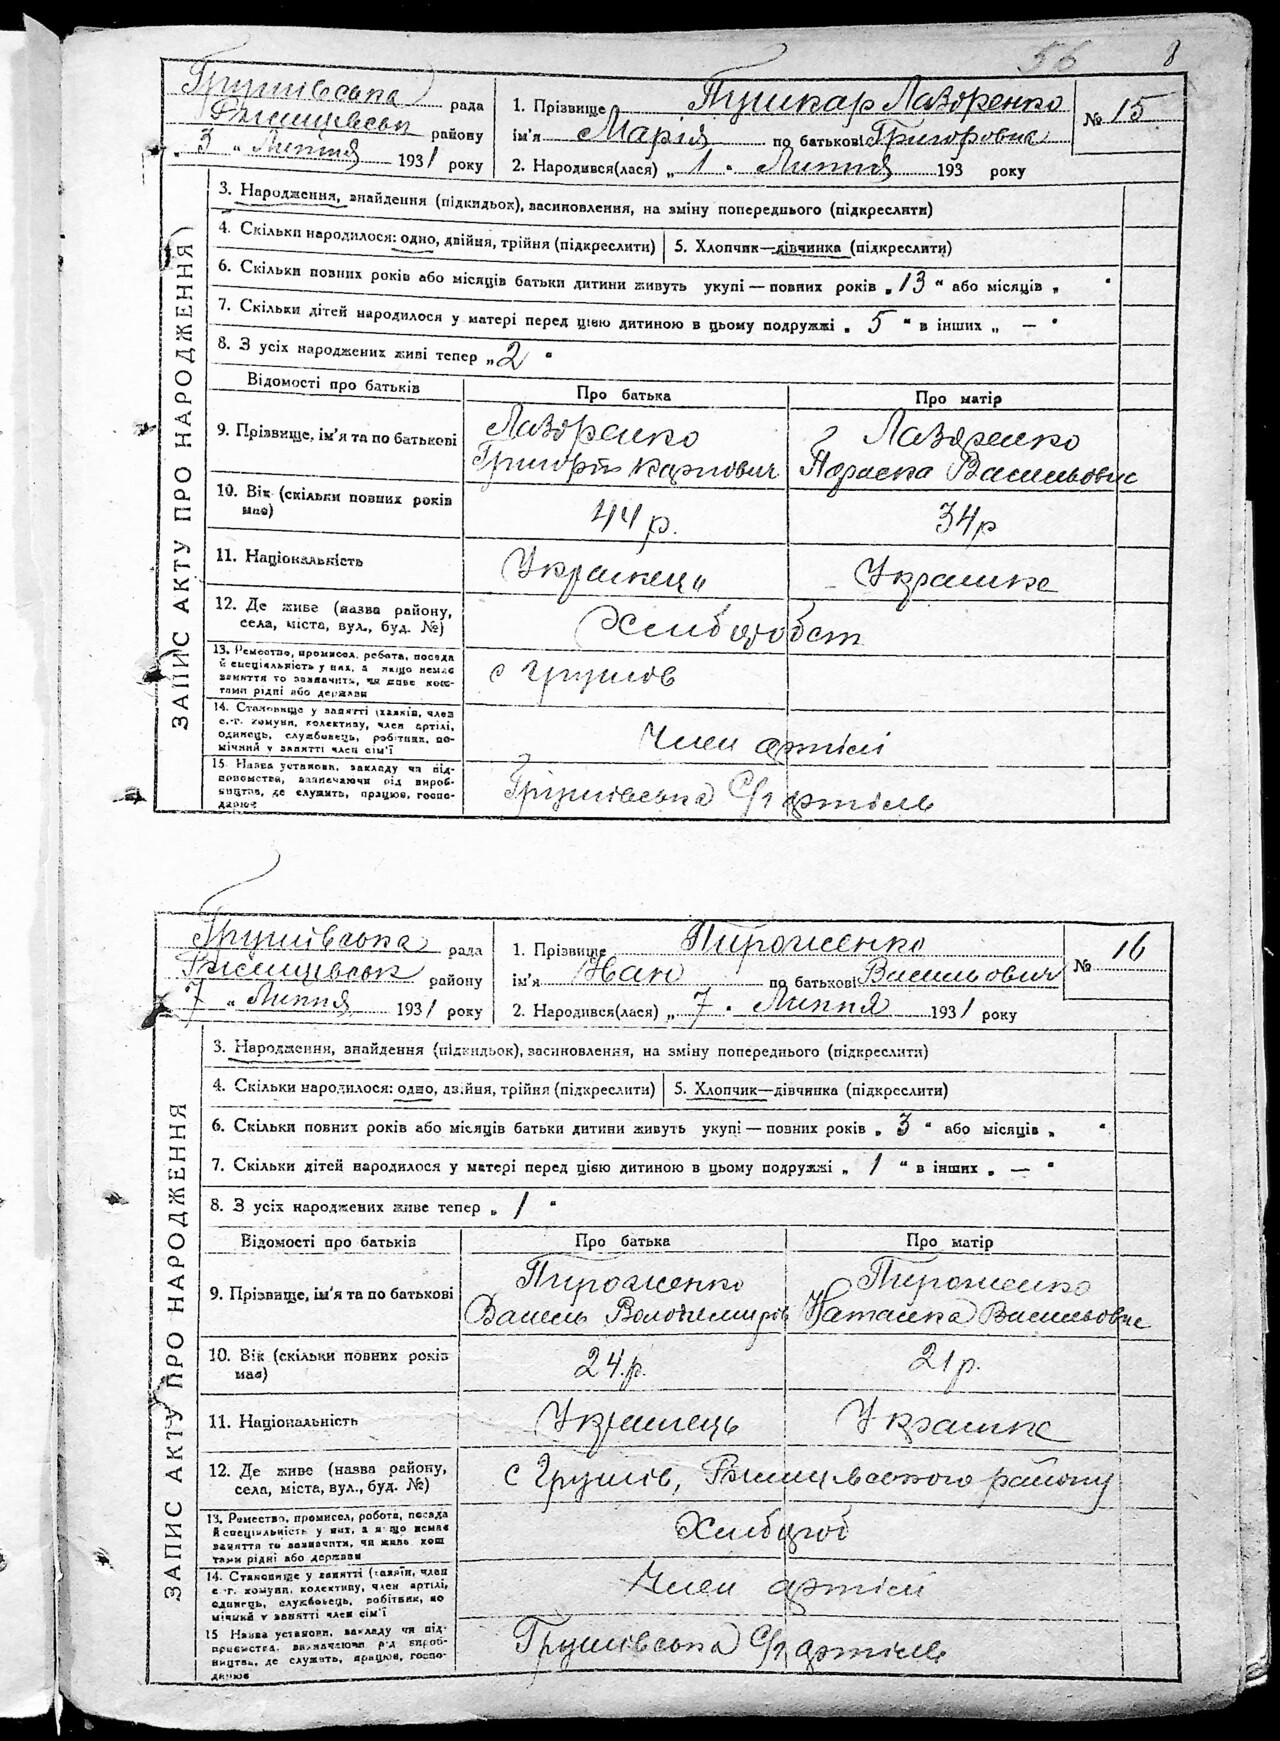 56 8
Грушівська рада
Ржищівськ району
„ 3 „ Липня 1931 року
1. Прізвище Пушкар Лазоренко
ім'я Марія по батькові Григоровна
2. Народився(лася) „ 1 „ Липня 193 року
№ 15
ЗАПИС АКТУ ПРО НАРОДЖЕННЯ
3. Народження, знайдення (підкидьок), васиновлення, на зміну попереднього (підкреслити)
4. Скільки народилося: одно, двійня, трійня (підкреслити) 5. Хлопчик—дівчинка (підкреслити)
6. Скільки повних років або місяців батьки дитини живуть укупі — повних років „ 13 “ або місяців „ “
7. Скільки дітей народилося у матері перед цією дитиною в цьому подружжі „ 5 “ в інших „ — “
8. З усіх народжених живі тепер „ 2 “
Відомості про батьків Про батька Про матір
9. Прізвище, ім'я та по батькові
Лазоренко
Григорій Карпович
Лазоренко
Параска Васильовна
10. Вік (скільки повних років має) 44 р. 34 р
11. Національність Українець Українка
12. Де живе (назва району,
села, міста, вул., буд. №)
Хлибороб
13. Ремество, промисел, робота, посада
й спеціяльність у них, а якщо немає
заняття то зазначить, чи живе кош-
тами рідні або держави
с Грушів
14. Становище у занятті (хазяїн, член
с.-г. комуни, колективу, член артілі,
одинець, службовець, робітник, по-
мічний у занятті член сім'ї
Член артілі
15. Назва установи, закладу чи під-
приємства, зазначаючи рід вироб-
ництва, де служить, працює, госпо-
дарює
Грушівська С/г артіль
Грушівська рада
Ржищівськ району
7 „ Липня 1931 року
1. Прізвище Пироженко
ім'я Іван по батькові Васильович
2. Народився(лася) „ 7 „ Липня 1931 року
№ 16
ЗАПИС АКТУ ПРО НАРОДЖЕННЯ
3. Народження, знайдення (підкидьок), васиновлення, на зміну попереднього (підкреслити)
4. Скільки народилося: одно, двійня, трійня (підкреслити) 5. Хлопчик—дівчинка (підкреслити)
6. Скільки повних років або місяців батьки дитини живуть укупі — повних років „ 3 “ або місяців „ “
7. Скільки дітей народилося у матері перед цією дитиною в цьому подружжі „ 1 “ в інших „ — “
8. З усіх народжених живе тепер „ 1 “
Відомості про батьків Про батька Про матір
9. Прізвище, ім'я та по батькові
Пироженко
Василь Володимиров
Пироженко
Наталка Васильовна
10. Вік (скільки повних років має) 24 р. 21 р.
11. Національність Українець Українка
12. Де живе (назва району,
села, міста, вул., буд. №)
с Грушів, Ржищівського району
13. Ремество, промисел, робота, посада
й спеціяльність у них, а якщо немає
заняття то зазначити, чи живе кош
тами рідні або держави
Хлибороб
14. Становище у занятті (хазяїн, член
с.-г. комуни, колективу, член артілі,
одинець, службовець, робітник, по
мічний у занятті член сім'ї
Член артілі
15 Назва установи, закладу чи під-
приємства, зазначаючи рід вироб-
ництва, де служить, працює, госпо-
дарює
Грушівська С/г артіль